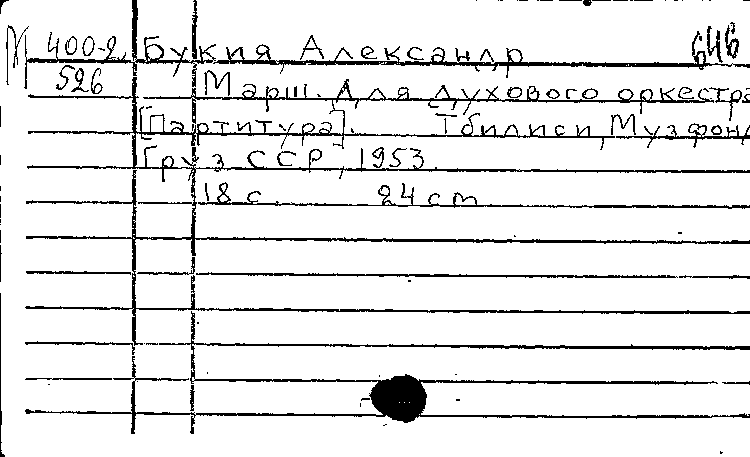 М 400-2 Букия, Александр 646
526 Марш. Для духового оркестра
[Партитура]. Тбилиси, Музфонд
Груз ССР, 1953.
18 с. 24 cm